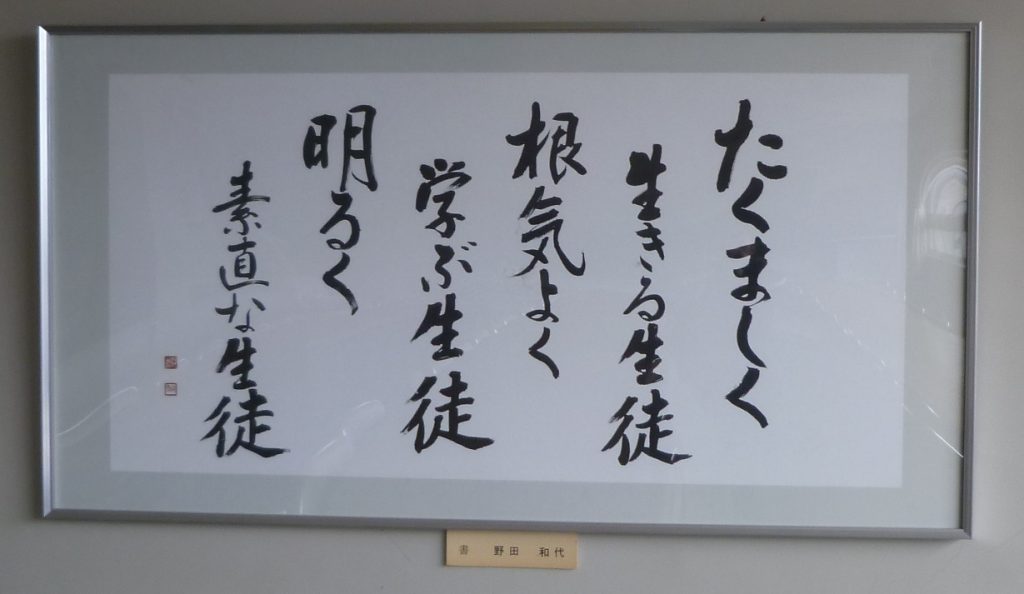 たくましく
生きる生徒
根気よく
学ぶ生徒
明るく
素直な生徒
書 野田 和代